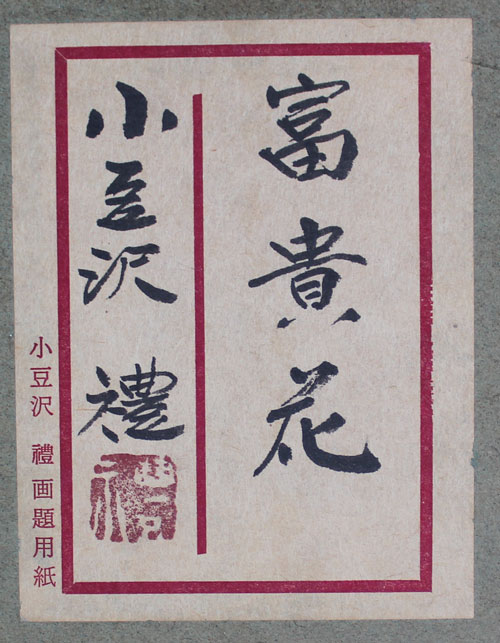 富貴花
小豆沢 禮
禮
小豆沢 禮 画題用紙